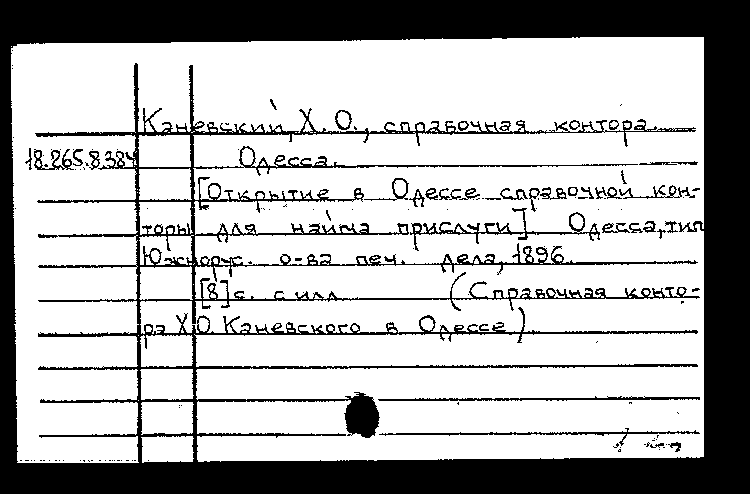 Каневский, Х. О., справочная контора.
18.265.8.384 Одесса.
[Открытие в Одессе справочной кон-
торы для найма прислуги]. Одесса, тип
Южнорус. о-ва печ. дела, 1896.
[8] с. с илл. (Справочная конто-
ра Х.О. Каневского в Одессе)